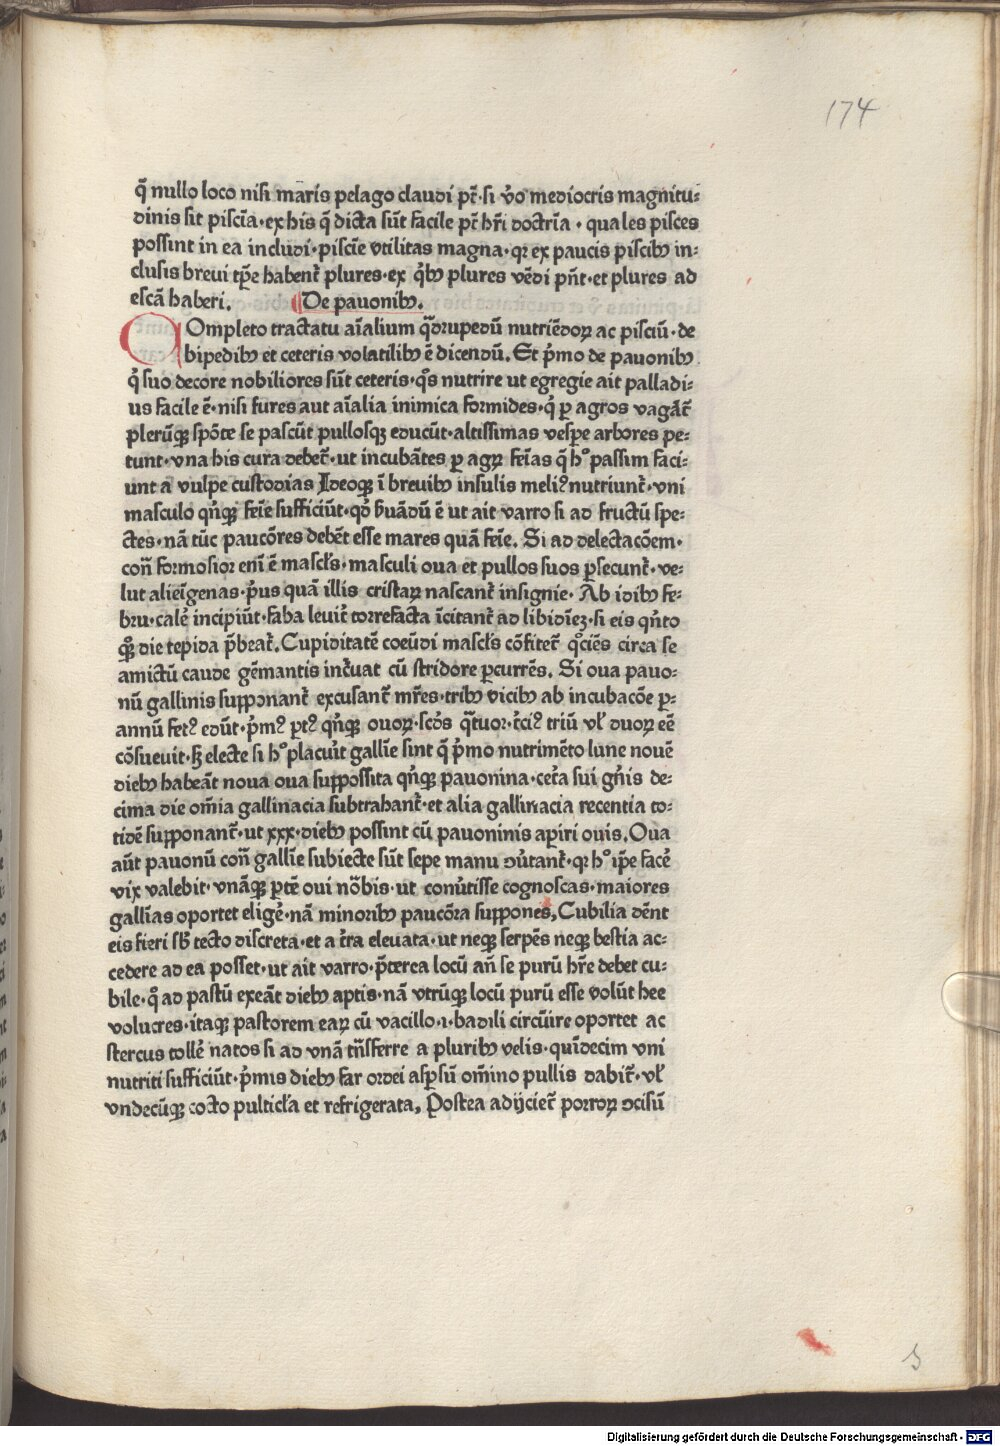 174
q̄ nullo loco nisi maris pelago claudi pt̄·si v̓o mediocris magnitu⸗
dinis sit pisciā·ex his q̄ dicta sūt facile pt̄ hr̄i doctrīa·quales pisces
possint in ea includi·piscīe vtilitas magna·qꝛ ex paucis piscibꝫ in⸗
clusis breui tp̄e habent᷑ plures·ex q̓bꝫ plures vēdi pn̄t·et plures ad
escā haberi. ¶De pauonibꝫ.
COmpleto tractatu aīalium q̄drupedū nutriēdoꝝ ac pisciū·de
bipedibꝫ et ceteris volatilibꝫ ē dicendū. Et p̓mo de pauonibꝫ
q̓ suo decore nobiliores sūt ceteris·q̄s nutrire ut egregie ait palladi⸗
us facile ē·nisi fures aut aīalia inimica formides·q̓ ꝑ agros vagāt᷑
plerūqꝫ spōte se pascūt pullosqꝫ educūt·altissimas vesp̄e arbores pe⸗
tunt·vna his cura debet᷑·ut incubātes ꝑ agꝝ feīas q̄ h° passim faci⸗
unt a vulpe custodias Ideoqꝫ ī breuibꝫ insulis meliꝰ nutriunt᷑·vni
masculo qn̄qꝫ feīe sufficiūt·qd̓ ẜuādū ē ut ait varro si ad fructū spe⸗
ctes·nā tūc paucōres debēt esse mares quā feīe. Si ad delectacōem·
con̄ formosior eni ē mascl̓s·masculi oua et pullos suos ꝑsecunt᷑·ve⸗
lut alieīgenas·p̓us quā illis cristaꝝ nascant᷑ insignie. Ab idibꝫ fe⸗
bru·cale᷑ incipiūt·faba leuit᷑ torrefacta īcitant᷑ ad libidīeꝫ·si eis qn̄to
qꝫ die tepida p̄beat᷑. Cupiditatē coeūdi mascl̓s cōfitet᷑ q°ciēs circa se
amictū caude gēmantis inc̓uat cū stridore ꝑcurrēs. Si oua pauo⸗
nū gallinis supponant᷑ excusant᷑ mr̄es·tribꝫ vicibꝫ ab incubacōe ꝑ⸗
annū fetꝰ edūt·p̓mꝰ ꝑtꝰ qn̄qꝫ ouoꝝ·scd̓s q̄tuor·t̓ciꝰ triū vl̓ duoꝝ eē
cōsueuit·ꝫ electe si h° placuīt gallīe sint q̄ p̓mo nutrimēto lune nouē
diebꝫ habeāt noua oua suppossita qn̄qꝫ pauonina·cet̓a sui gn̄is de⸗
cima die om̄ia gallinacia subtrahant᷑·et alia gallinacia recentia to⸗
tidē supponant᷑·ut xxx·diebꝫ possint cū pauoninis apiri ouis. Oua
aūt pauonū con̄ gallīe subiecte sūt sepe manu ɔūtant᷑·qꝛ h° ip̄e face᷑
vix valebit·vnāqꝫ ꝑtē oui nōbis·ut conūtisse cognoscas·maiores
gallīas oportet elige᷑·nā minoribꝫ paucōra suppones, Cubilia dēnt
eis fieri sb̄ tecto discreta·et a t̓ra eleuata·ut neqꝫ serpēs neqꝫ bestia ac⸗
cedere ad ea posset·ut ait varro·p̄terea locū an̄ se purū hr̄e debet cu⸗
bile·q̊ ad pastū exeāt diebꝫ aptis·nā vtrūqꝫ locū purū esse volūt hee
volucres·itaqꝫ pastorem eaꝝ cū vacillo·ı·badili circūire oportet ac
stercus tolle᷑ natos si ad vnā tn̄sferre a pluribꝫ velis·quīdecim vni
nutriti sufficiūt·p̓mis diebꝫ far ordei asp̄sū om̄ino pullis dabit᷑·vl̓
vndecūqꝫ cocto pulticl̓a et refrigerata, Postea adijciet᷑ porroꝝ ɔcisū
Digitalisierung gefördert durch die Deutsche Forschungsgemeinschaft · DFG